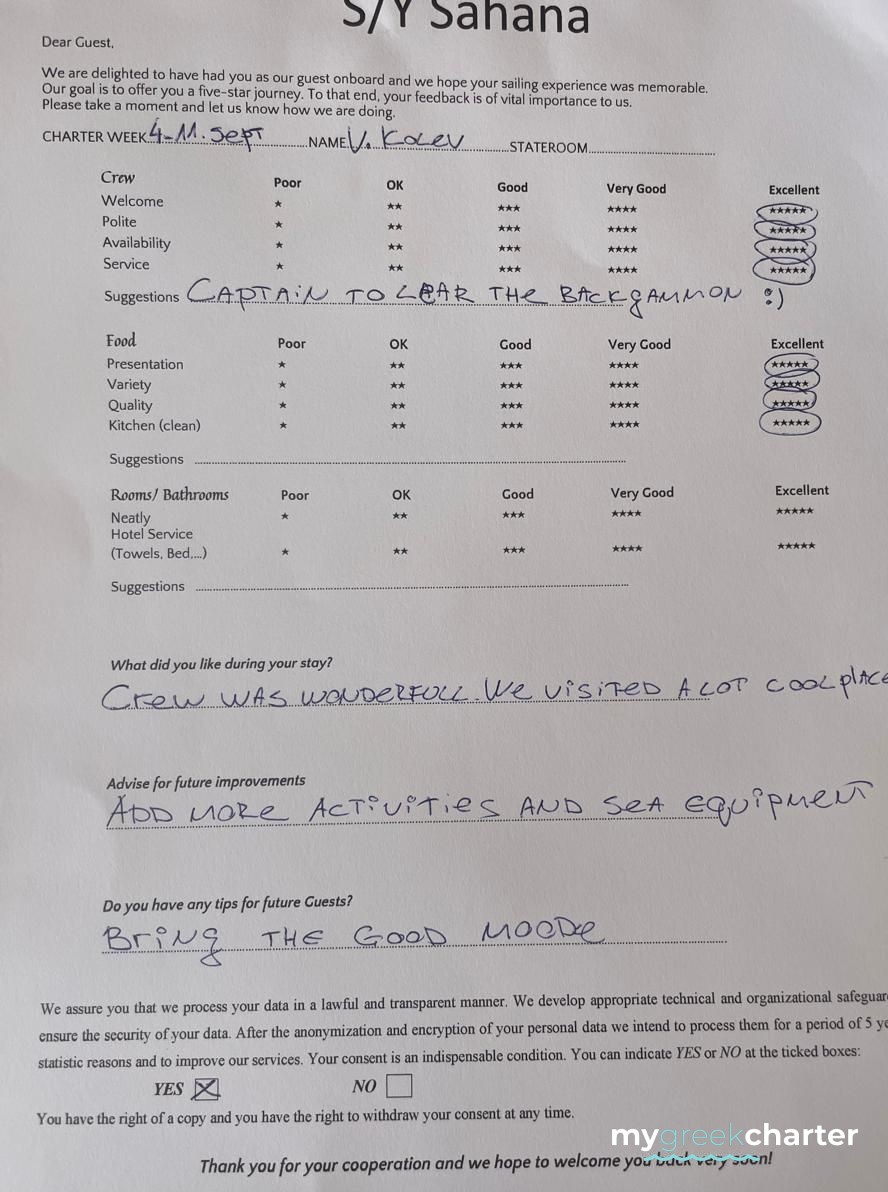 S/Y Sahana
Dear Guest,
We are delighted to have had you as our guest onboard and we hope your sailing experience was memorable.
Our goal is to offer you a five-star journey. To that end, your feedback is of vital importance to us.
Please take a moment and let us know how we are doing.
CHARTER WEEK 4-11. Sept NAME V. Kolev STATEROOM
Crew Poor OK Good Very Good Excellent
Welcome ★ ★★ ★★★ ★★★★ ★★★★★
Polite ★ ★★ ★★★ ★★★★ ★★★★★
Availability ★ ★★ ★★★ ★★★★ ★★★★★
Service ★ ★★ ★★★ ★★★★ ★★★★★
Suggestions CAPTAIN TO LEAR THE BACKgAMMON :)
Food Poor OK Good Very Good Excellent
Presentation ★ ★★ ★★★ ★★★★ ★★★★★
Variety ★ ★★ ★★★ ★★★★ ★★★★★
Quality ★ ★★ ★★★ ★★★★ ★★★★★
Kitchen (clean) ★ ★★ ★★★ ★★★★ ★★★★★
Suggestions
Rooms/ Bathrooms Poor OK Good Very Good Excellent
Neatly ★ ★★ ★★★ ★★★★ ★★★★★
Hotel Service
(Towels, Bed,...) ★ ★★ ★★★ ★★★★ ★★★★★
Suggestions
What did you like during your stay?
Crew WAS WONDERFULL. We VISITED A LOT COOL plACE
Advise for future improvements
ADD MORE ACTIVITIES AND SEA EQUIPMENT
Do you have any tips for future Guests?
BRING THE GOOD MOODE
We assure you that we process your data in a lawful and transparent manner. We develop appropriate technical and organizational safeguar
ensure the security of your data. After the anonymization and encryption of your personal data we intend to process them for a period of 5 ye
statistic reasons and to improve our services. Your consent is an indispensable condition. You can indicate YES or NO at the ticked boxes:
YES ☒ NO ☐
You have the right of a copy and you have the right to withdraw your consent at any time.
mygreekcharter
Thank you for your cooperation and we hope to welcome you back very soon!